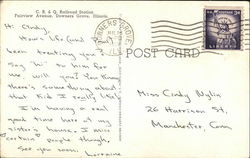 C. B. & Q. Railroad Station
Fairview Avenue, Downers Grove, Illinois
Hi Cindy,
How's life (and
been treating you?
Say "hi" to him for
me, will you? You know
there's something about
that kid I really like!
I'm having a real
good time here at my
sister's house. I miss
certain people though.
See you soon,
Lorraine
DOWNERS GROVE
POST CARD
LIBERTY
3¢
Miss Cindy
26 Harrison St.
Manchester, Conn